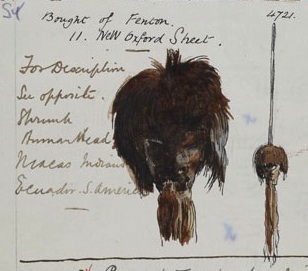 Bought of Fenton.
11. New Oxford Street.
4721.
For Description
See opposite.
Shrunk
Human Head
Macas Indians
Ecuador S. America